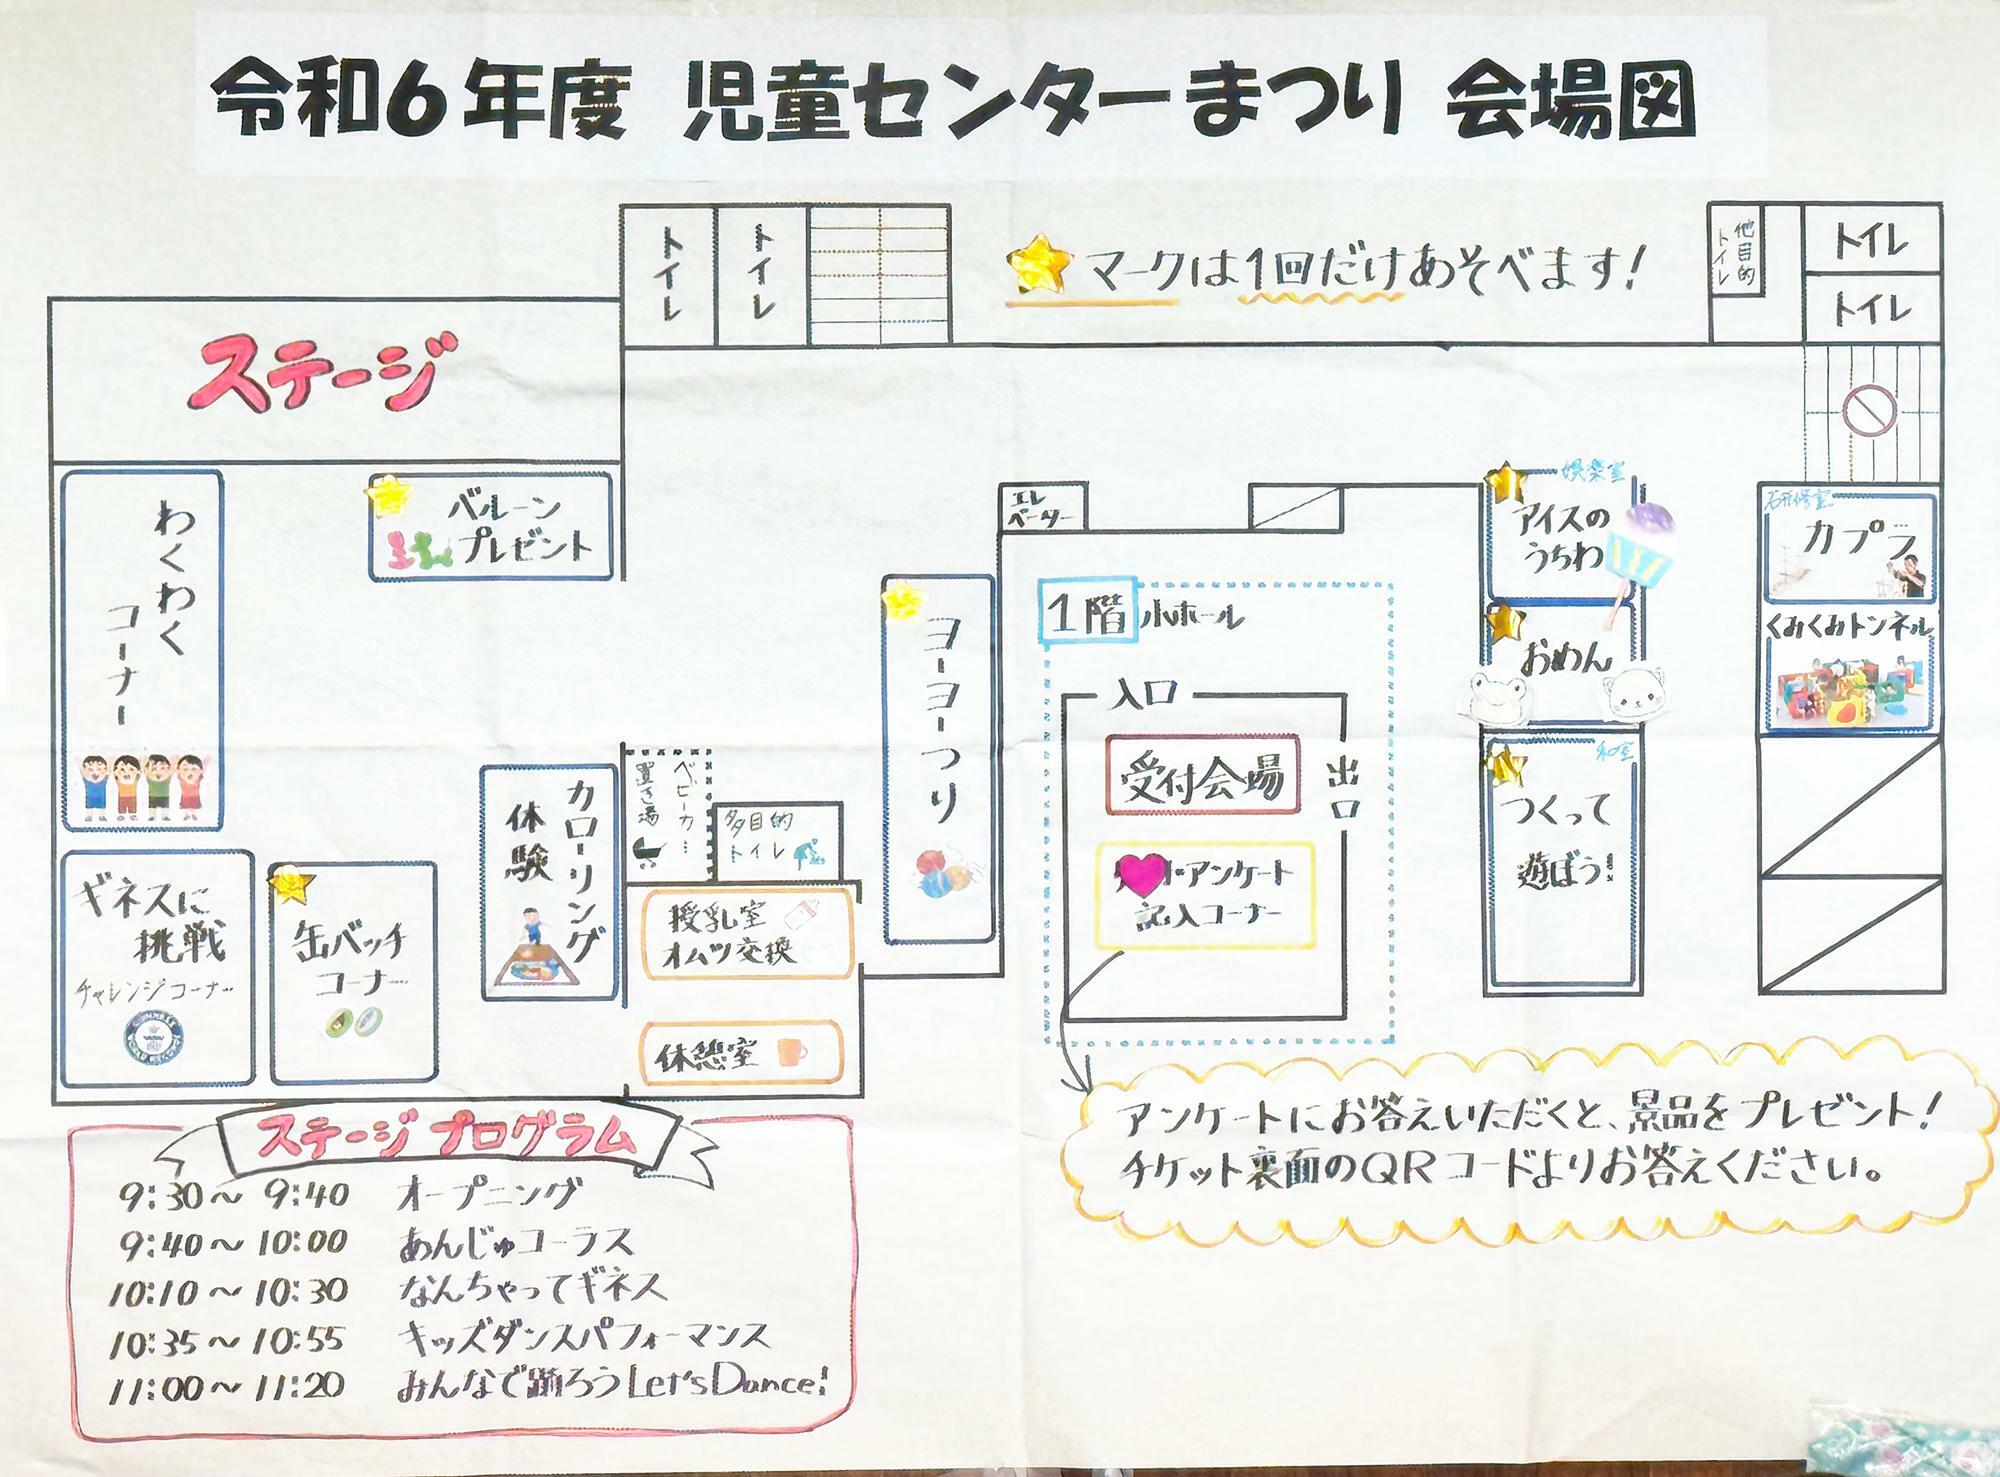 令和6年度 児童センターまつり 会場図
マークは1回だけあそべます!
トイレ
トイレ
他目的
トイレ
トイレ
トイレ
ステージ
わくわく
コーナー
バルーン
プレゼント
エレ
ベーター
ヨーヨーつり
1階 小ホール
入口
受付会場
出口
アンケート
記入コーナー
娯楽室
アイスの
うちわ
おめん
和室
つくって
遊ぼう!
研修室
カプラ
くみくみトンネル
ギネスに
挑戦
チャレンジコーナー
缶バッチ
コーナー
カローリング
体験
ベビーカー
置き場
多目的
トイレ
授乳室
オムツ交換
休憩室
アンケートにお答えいただくと、景品をプレゼント!
チケット裏面のQRコードよりお答えください。
ステージプログラム
9:30～9:40 オープニング
9:40～10:00 あんじゅコーラス
10:10～10:30 なんちゃってギネス
10:35～10:55 キッズダンスパフォーマンス
11:00～11:20 みんなで踊ろうLet'sDance!